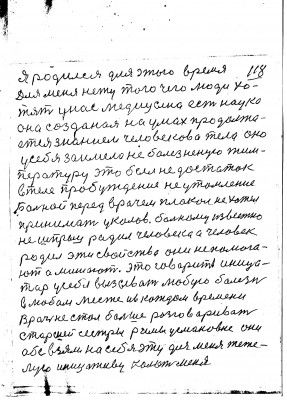 118
Я родился для этого время
для меня нету того чего люди хо-
тят у нас медицина ест наука
она созданая на умах продолжа-
ется знанием человекова тела оно
у себя заимело не болезненую тим-
пературу это был недостаток
в теле пробуждение не утомление
Болной перед врачем плакол не хотел
принимат уколов. болному известно
не шприц радил человека а человек
родил эти свойство они непомога-
ют а мишают. Это говарить иници-
тар у себя вызыват любую болезн
в любом месте и в каждом времени
Врач не стол больше розговариват
старшей сестры они
обе взям на себя эту для меня теже-
лую инициативу меня